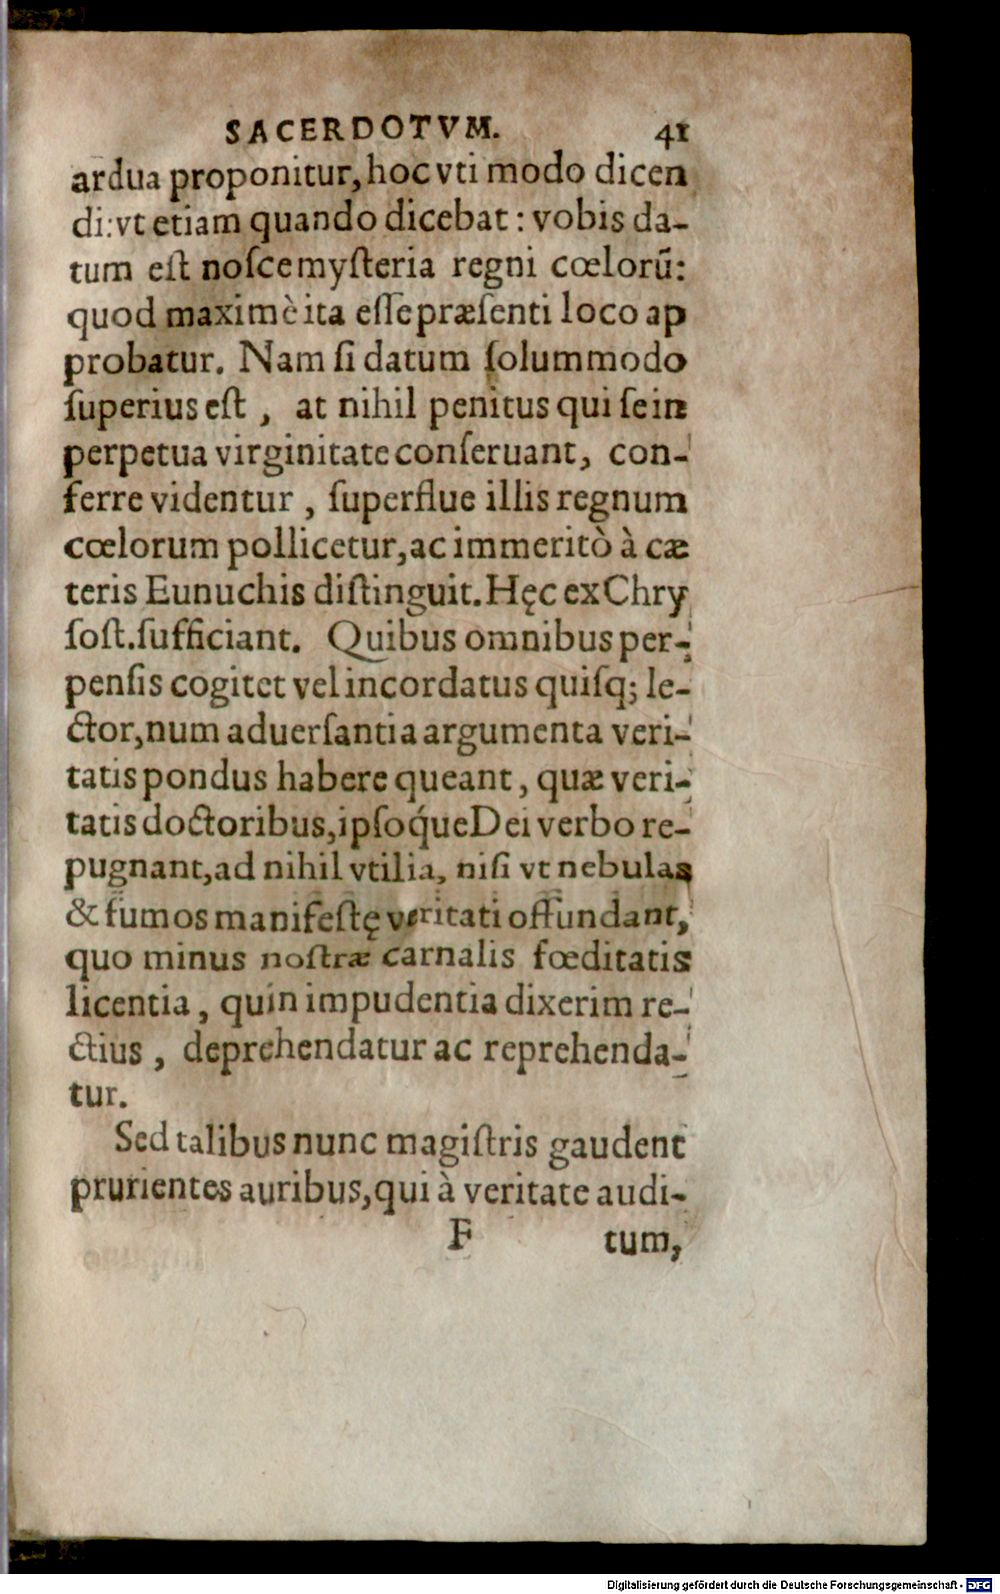 SACERDOTVM. 41
ardua proponitur, hoc vti modo dicen
di: vt etiam quando dicebat : vobis da-
tum eſt noſce myſteria regni cœlorū:
quod maximè ita eſſe præſenti loco ap
probatur. Nam ſi datum ſolummodo
ſuperius eſt , at nihil penitus qui ſe in
perpetua virginitate conſeruant, con-
ferre videntur , ſuperflue illis regnum
cœlorum pollicetur, ac immeritò à cæ
teris Eunuchis diſtinguit. Hęc ex Chry
ſoſt. ſufficiant. Quibus omnibus per-
penſis cogitet vel incordatus quiſq; le-
ctor, num aduerſantia argumenta veri-
tatis pondus habere queant , quæ veri-
tatis doctoribus, ipſoq́ue Dei verbo re-
pugnant, ad nihil vtilia, niſi vt nebulas
& fumos manifeſtę veritati offundant,
quo minus noſtræ carnalis fœditatis
licentia , quin impudentia dixerim re-
ctius , deprehendatur ac reprehenda-
tur.
Sed talibus nunc magiſtris gaudent
prurientes auribus, qui à veritate audi-
F tum,
Digitalisierung gefördert durch die Deutsche Forschungsgemeinschaft - DFG